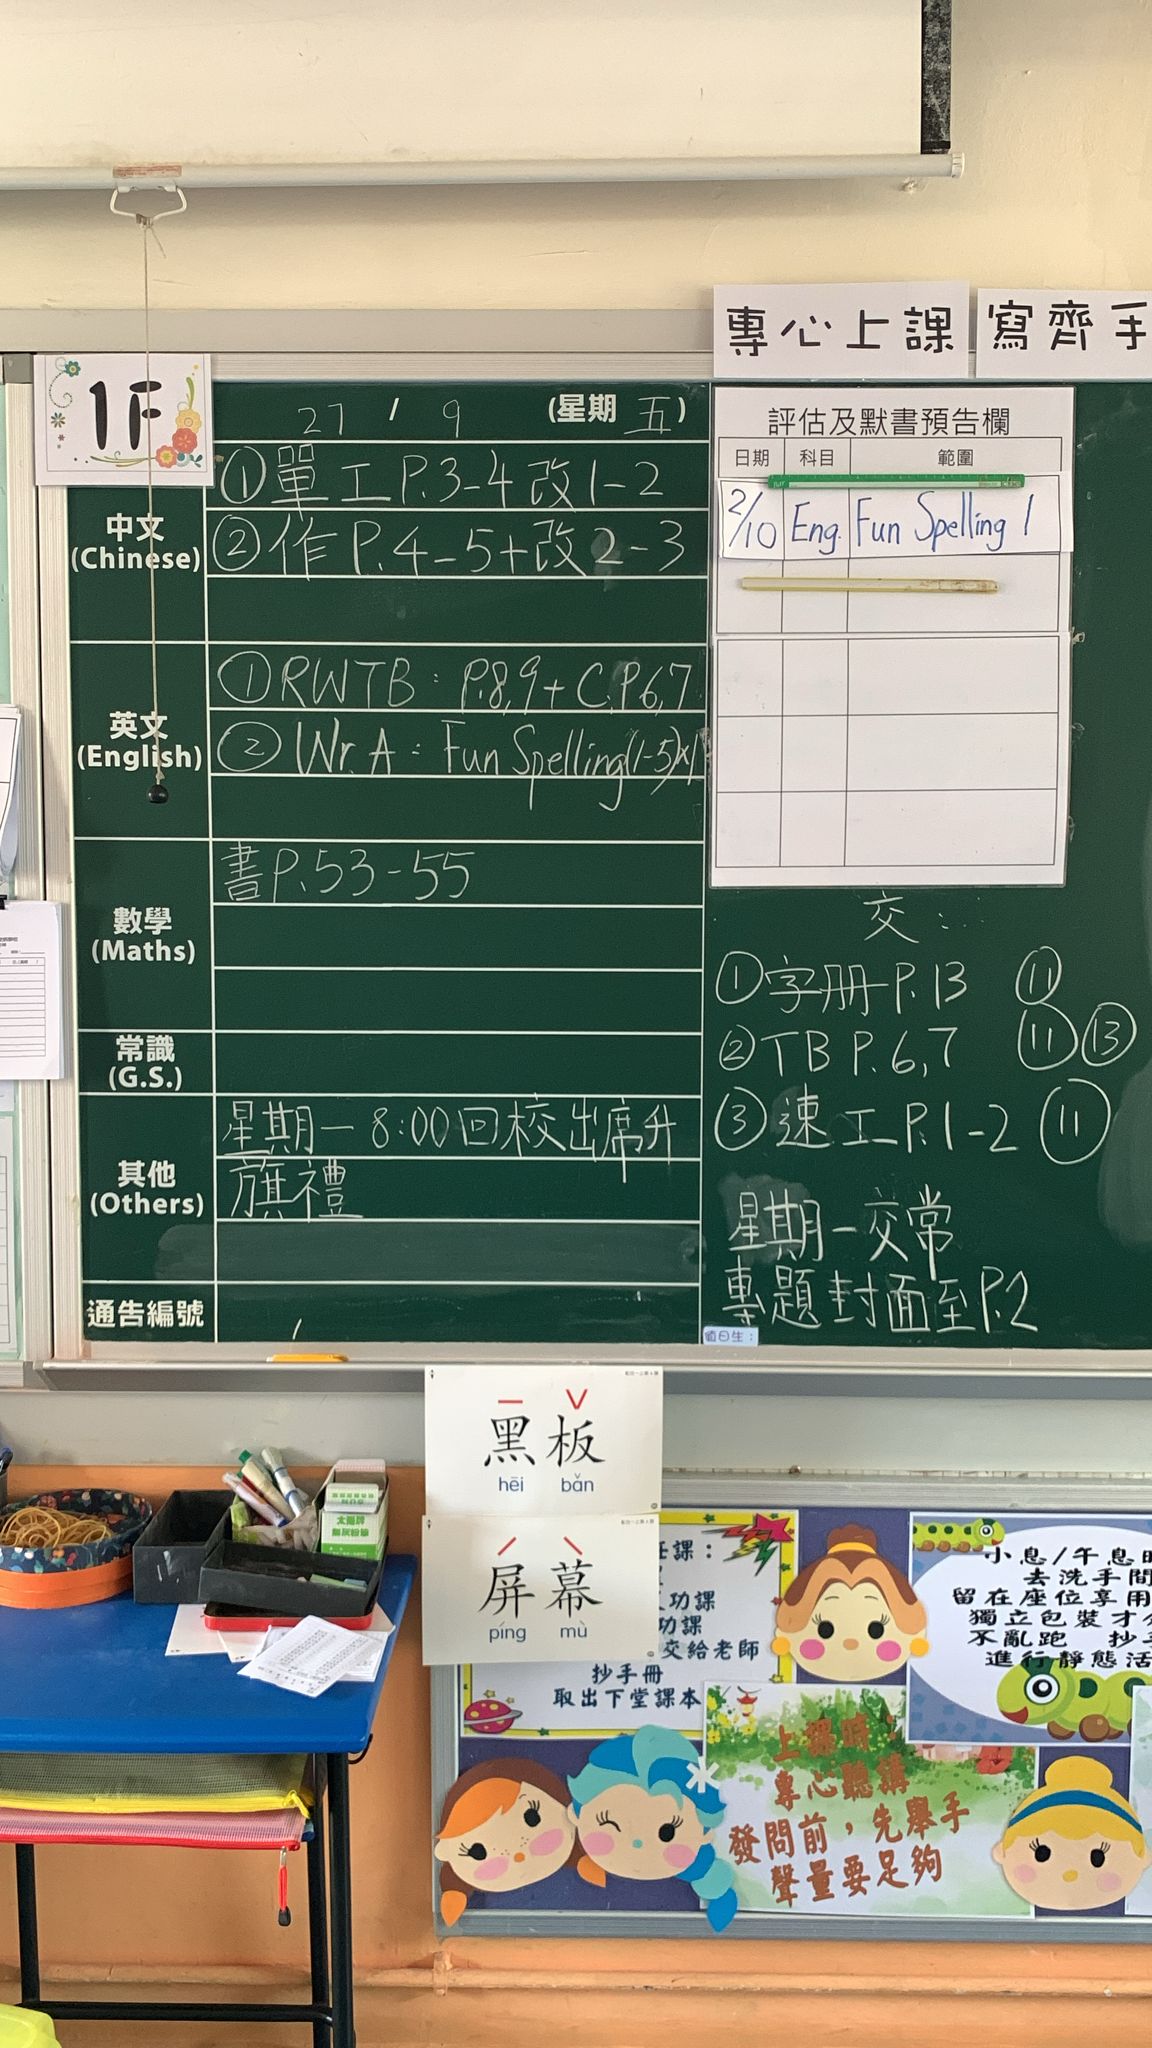 專心上課
寫齊手
1F
27 / 9 (星期 五)
中文
(Chinese)
①單工P.3-4改1-2
②作P.4-5+改2-3
英文
(English)
①RWTB: P.8,9+C.P.6,7
②Wr.A: Fun Spelling(1-5)x1
數學
(Maths)
書P.53-55
常識
(G.S.)
其他
(Others)
星期一8:00回校出席升
旗禮
通告編號
評估及默書預告欄
日期 科目 範圍
2/10 Eng. Fun Spelling 1
交:
①字冊P.13 ⑪
②TB P.6,7 ⑪⑬
③速工P.1-2 ⑪
星期一交常
專題封面至P.2
值日生:
黑板
hēi bǎn
屏幕
píng mù
任課:
功課
功課
交給老師
抄手冊
取出下堂課本
小息/午息時
去洗手間
留在座位享用
獨立包裝才
不亂跑 抄
進行靜態活
上課時,
專心聽講
發問前,先舉手
聲量要足夠